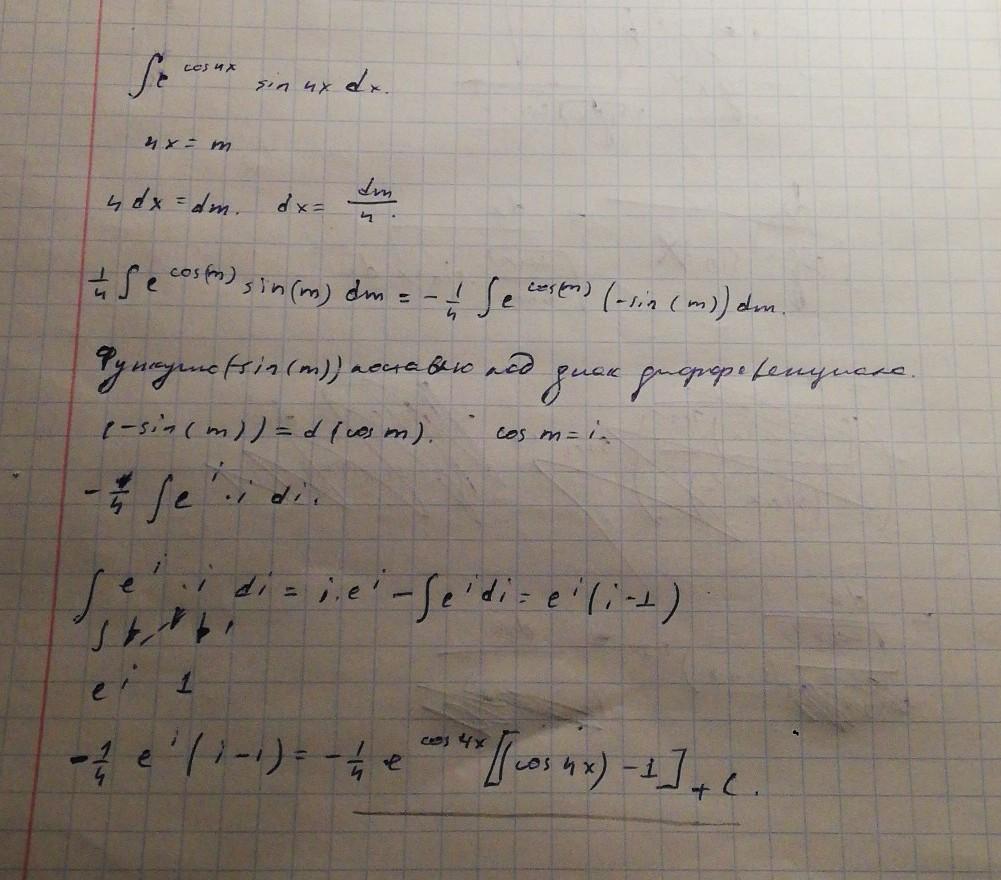 ∫e^(cos4x) sin 4x dx.
4x = m
4 dx = dm. dx = dm/4.
1/4 ∫ e^(cos(m)) sin(m) dm = -1/4 ∫ e^(cos(m)) (-sin(m)) dm.
Функцию (-sin(m)) поставлю под знак дифференциала.
(-sin(m)) = d(cos m). cos m = i.
-1/4 ∫e^i · i di.
∫ e^i · i di = i·e^i - ∫e^i di = e^i(i-1)
e^i 1
-1/4 e^i (i-1) = -1/4 e^(cos4x) [(cos 4x) -1] + C.